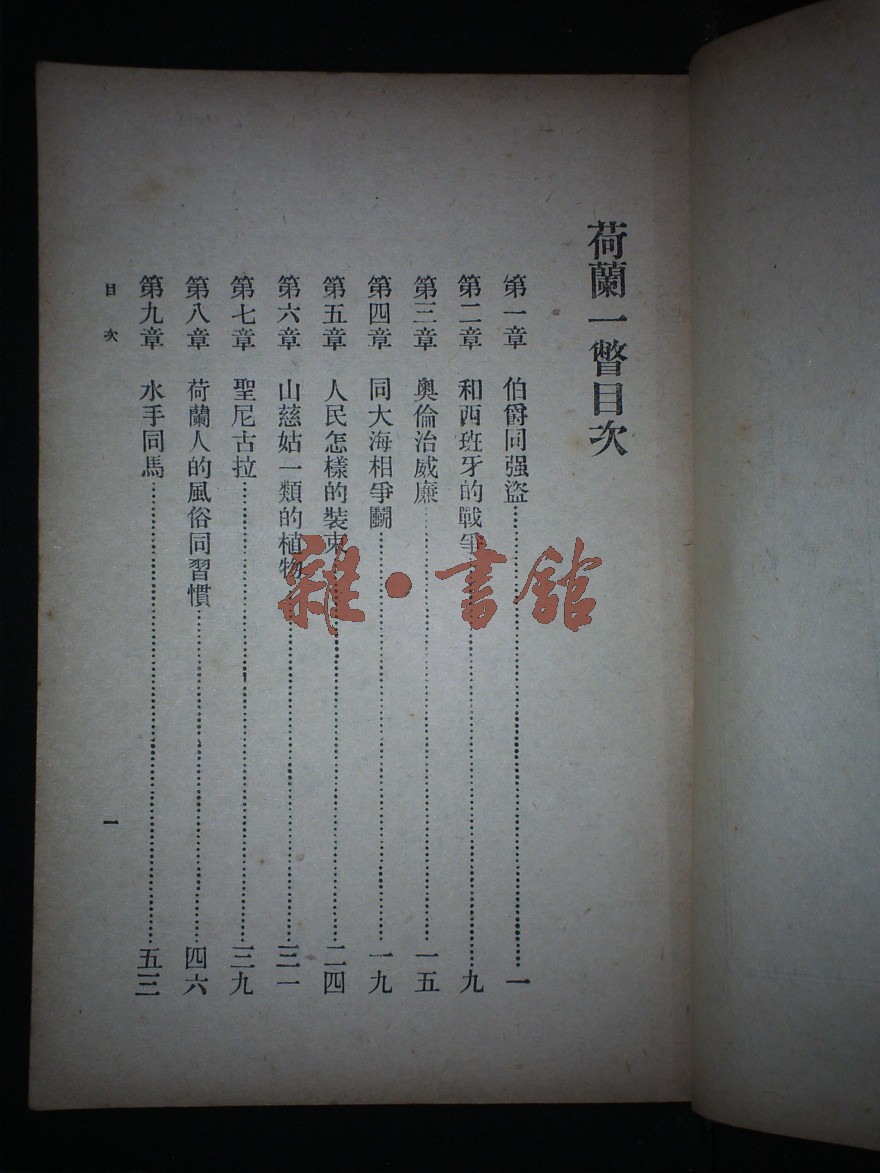 荷蘭一瞥目次
第一章 伯爵同强盜……一
第二章 和西班牙的戰爭……九
第三章 奧倫治威廉……一五
第四章 同大海相爭鬭……一九
第五章 人民怎樣的裝束……二四
第六章 山慈姑一類的植物……三一
第七章 聖尼古拉……三九
第八章 荷蘭人的風俗同習慣……四六
第九章 水手同馬……五三
目次 一
雜·書館